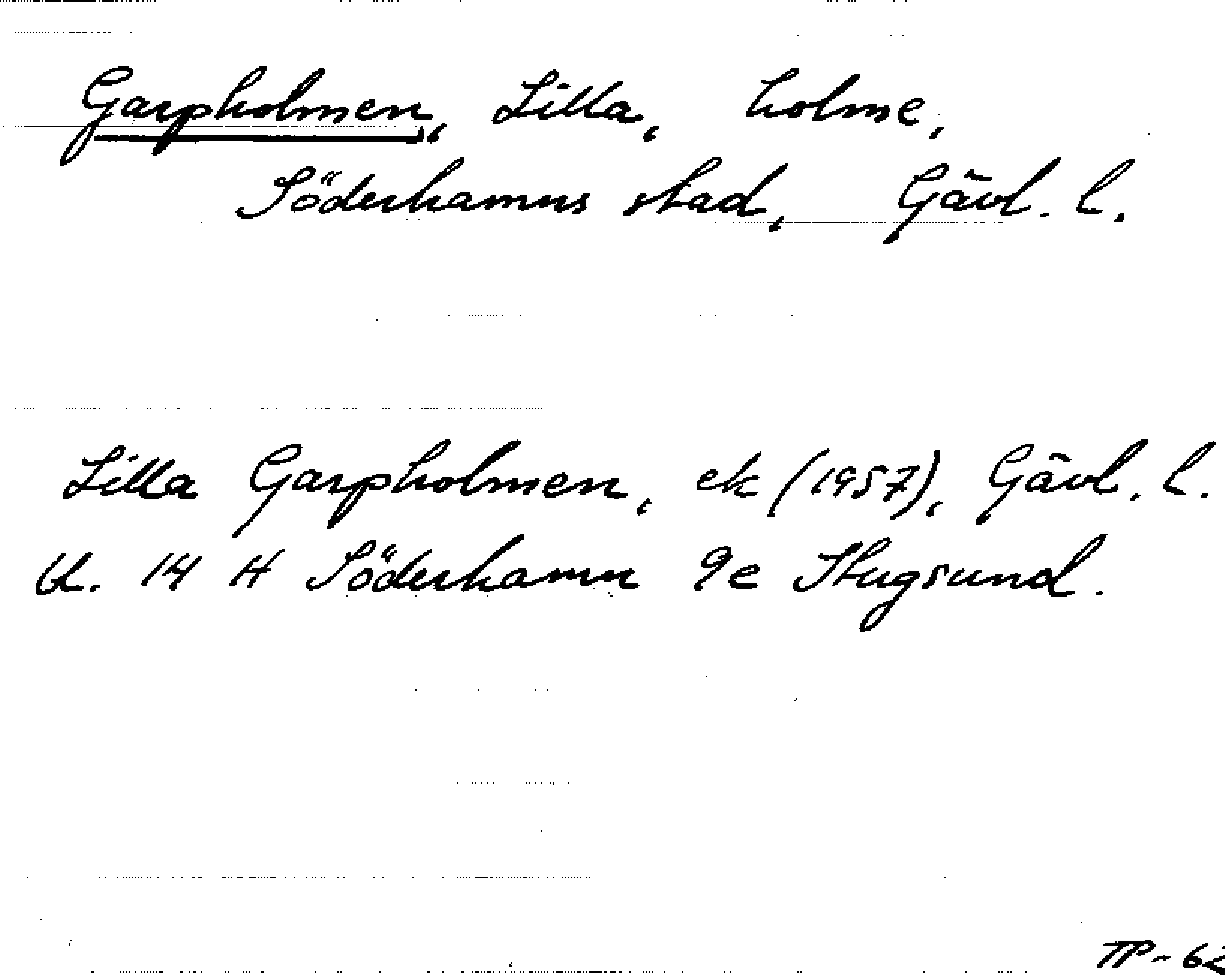 Garpholmen, Lilla, holme,
Söderhamns stad, Gävl. l.
Lilla Garpholmen, ek (1957), Gävl. l.
Bl. 14 H Söderhamn 9e Stugsund.
TP-62